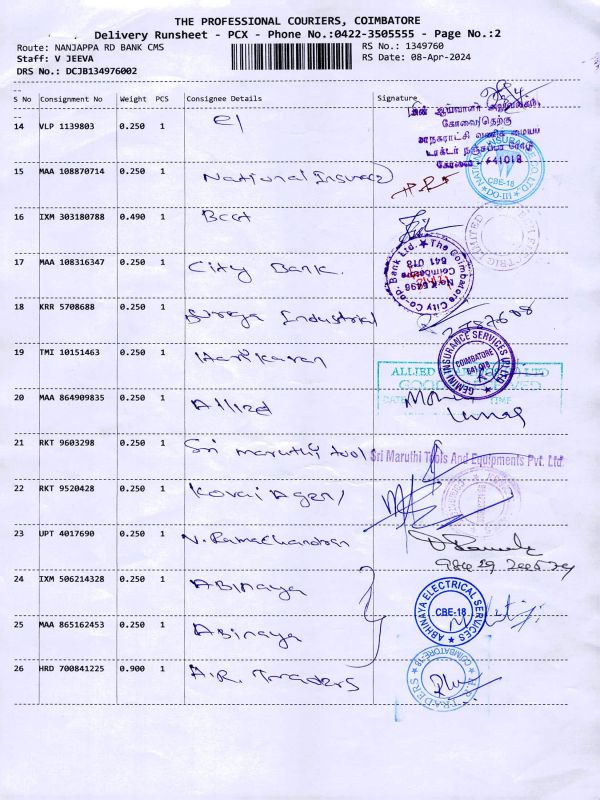 THE PROFESSIONAL COURIERS, COIMBATORE
Delivery Runsheet - PCX - Phone No.:0422-3505555 - Page No.:2
Route: NANJAPPA RD BANK CMS
RS No.: 1349760
Staff: V JEEVA
RS Date: 08-Apr-2024
DRS No.: DCJB134976002
S No Consignment No Weight PCS Consignee Details Signature
14 VLP 1139803 0.250 1 el
கோவை/தெற்கு
கோவை - 641018
15 MAA 108870714 0.250 1 National Insurance
NATIONAL INSURANCE CO. LTD
CBE-18
DO-III
16 IXM 303180788 0.490 1
17 MAA 108316347 0.250 1 City Bank.
The Coimbatore City Co-opp. Bank Ltd.
Coimbatore
641 018
18 KRR 5708688 0.250 1 Industrial
19 TMI 10151463 0.250 1 Harikaran
GEMINI INSURANCE SERVICES (P) LTD
COIMBATORE
641 018
20 MAA 864909835 0.250 1 Allied
ALLIED LTD
DATE TIME
21 RKT 9603298 0.250 1 Sri maruthi tool
Sri Maruthi Tools And Equipments Pvt. Ltd.
22 RKT 9520428 0.250 1 Kovai Agen/
23 UPT 4017690 0.250 1 N. Ramachandran
24 IXM 506214328 0.250 1 Abinaya
ABHINAYA ELECTRICAL SERVICES
CBE-18
25 MAA 865162453 0.250 1 Abinaya
26 HRD 700841225 0.900 1 A.R. Traders
TRADERS
COIMBATORE-18